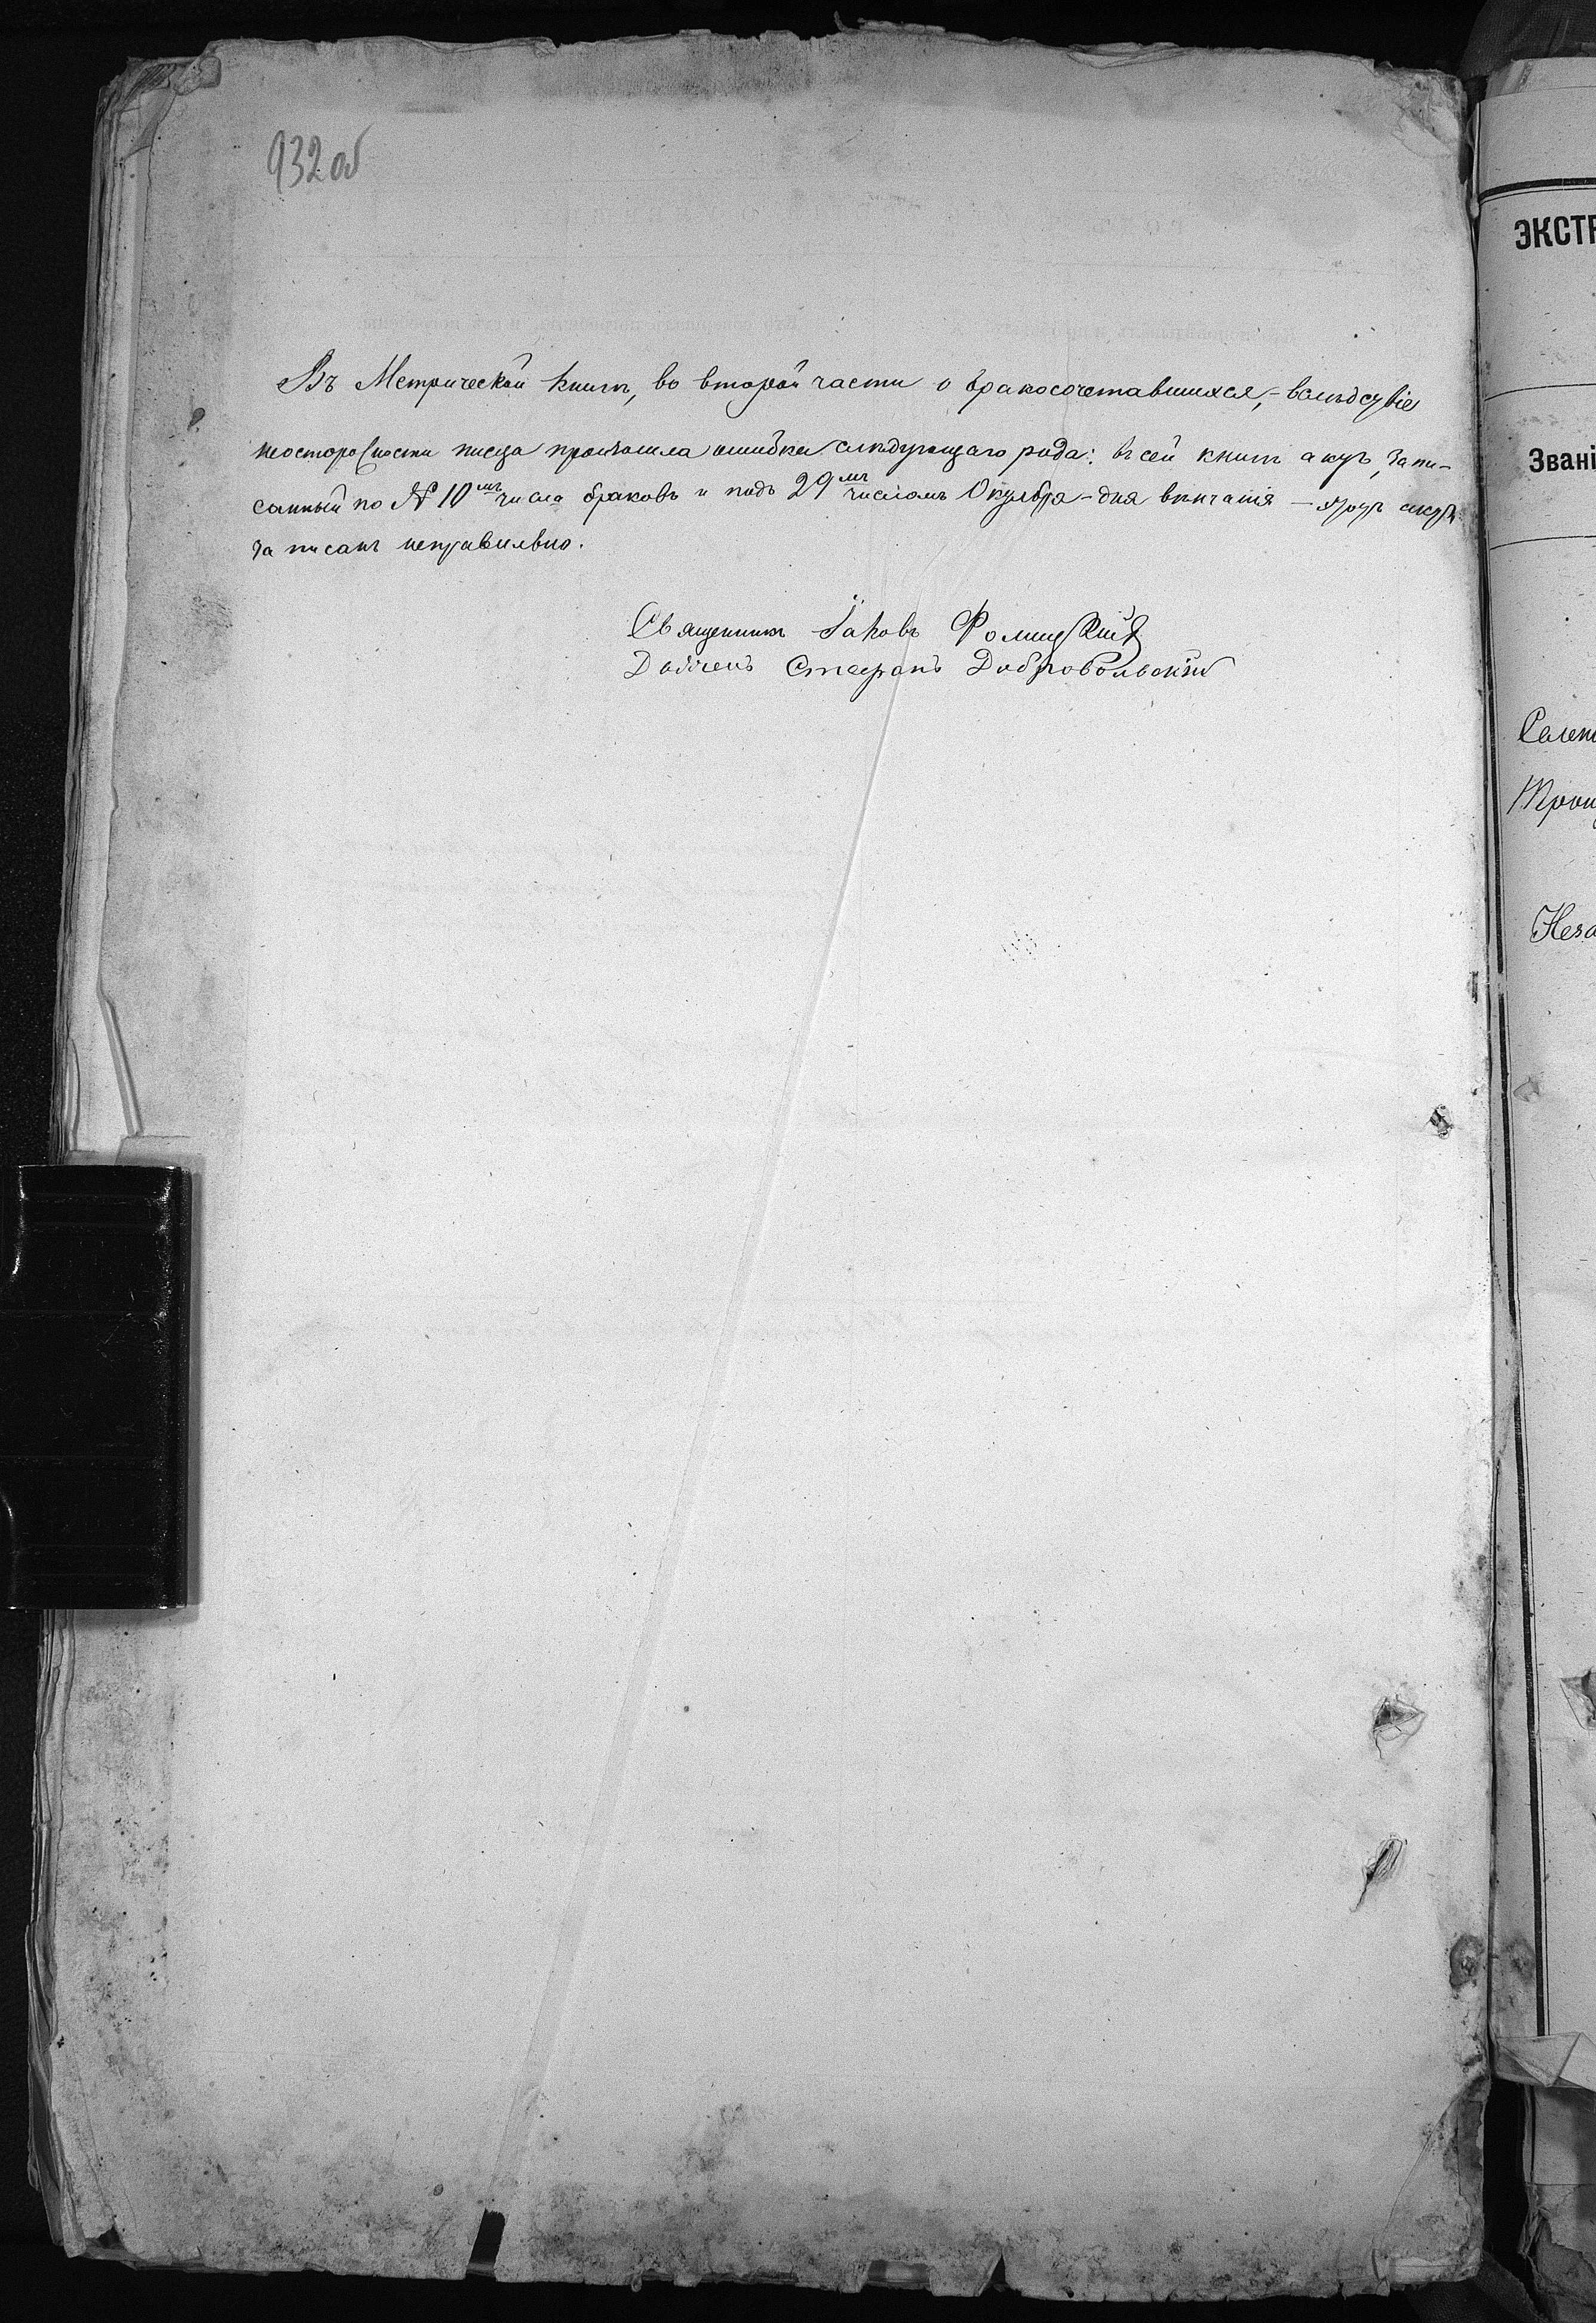 932 об
Въ Метрической книгѣ, во второй части о бракосочетавшихся, - вслѣдствіе
неосторожности писца произошла ошибка слѣдующаго рода: въ сей книгѣ актъ, запи-
санный по № 10мъ числа браковъ и подъ 29мъ числомъ Октября - дня вѣнчанія - этотъ актъ
записанъ неправильно.
Священникъ Іаковъ
Стефанъ Добровольскій
ЭКСТР
Звані